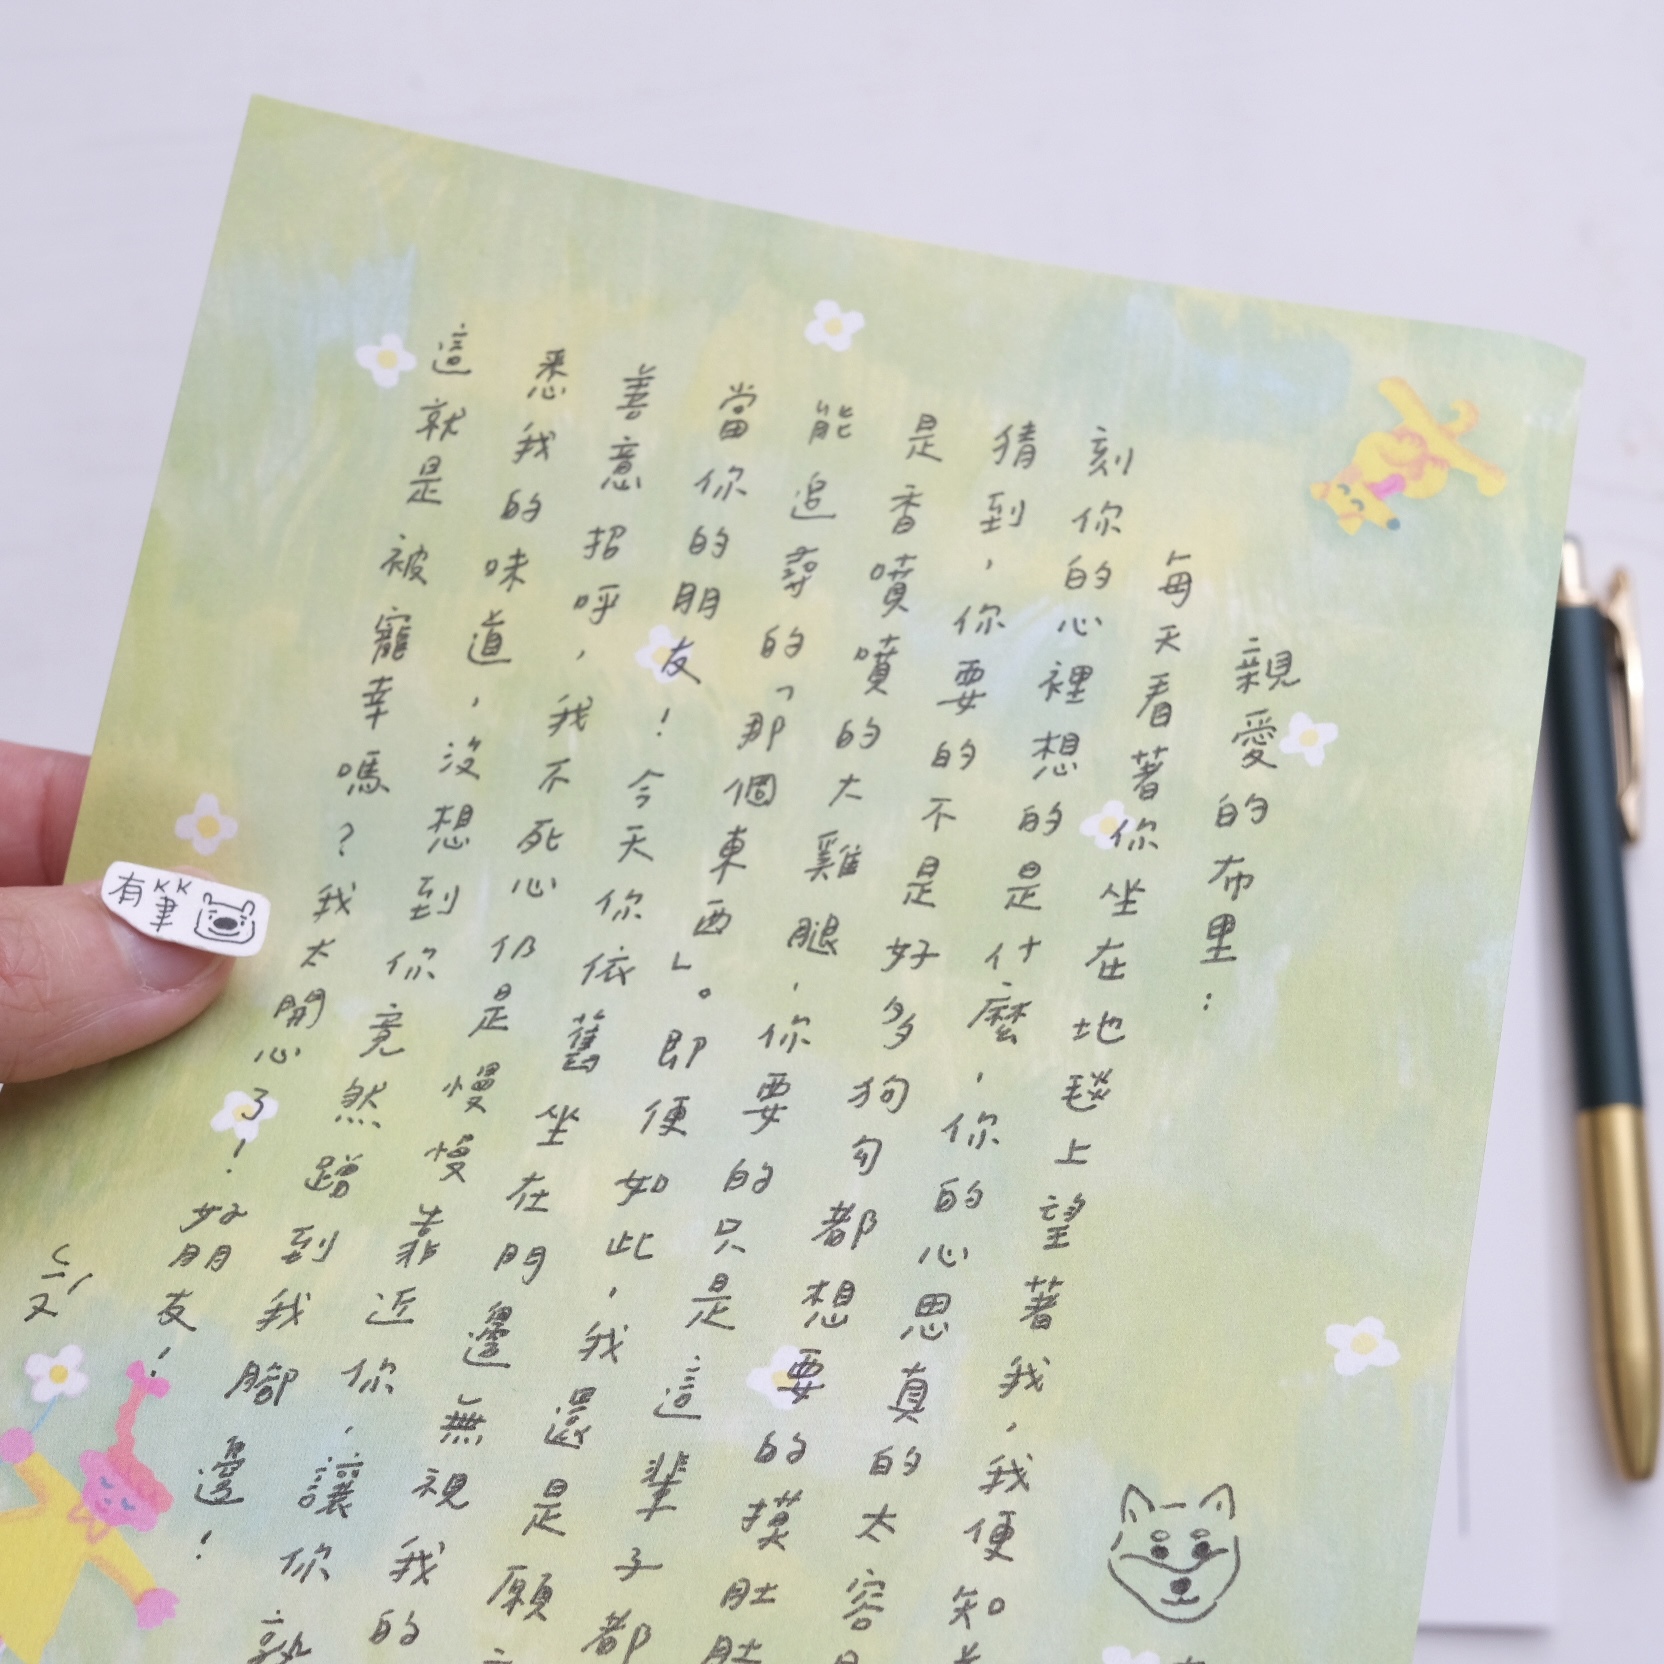 親愛的布里：
每天看著你坐在地毯上望著我，我便知
刻你的心裡想的是什麼，你的心思真的太容
猜到，你要的不是好多狗勾都想要的摸肚肚
是香噴噴的大雞腿，你要的只是這輩子都
能追尋的「那個東西」。即便如此，我還是願
當你的朋友！今天你依舊坐在門邊無視我的
善意招呼，我不死心仍是慢慢靠近你，讓你熟
悉我的味道，沒想到你竟然蹭到我腳邊！
這就是被寵幸嗎？我太開心了！好朋友！
有筆